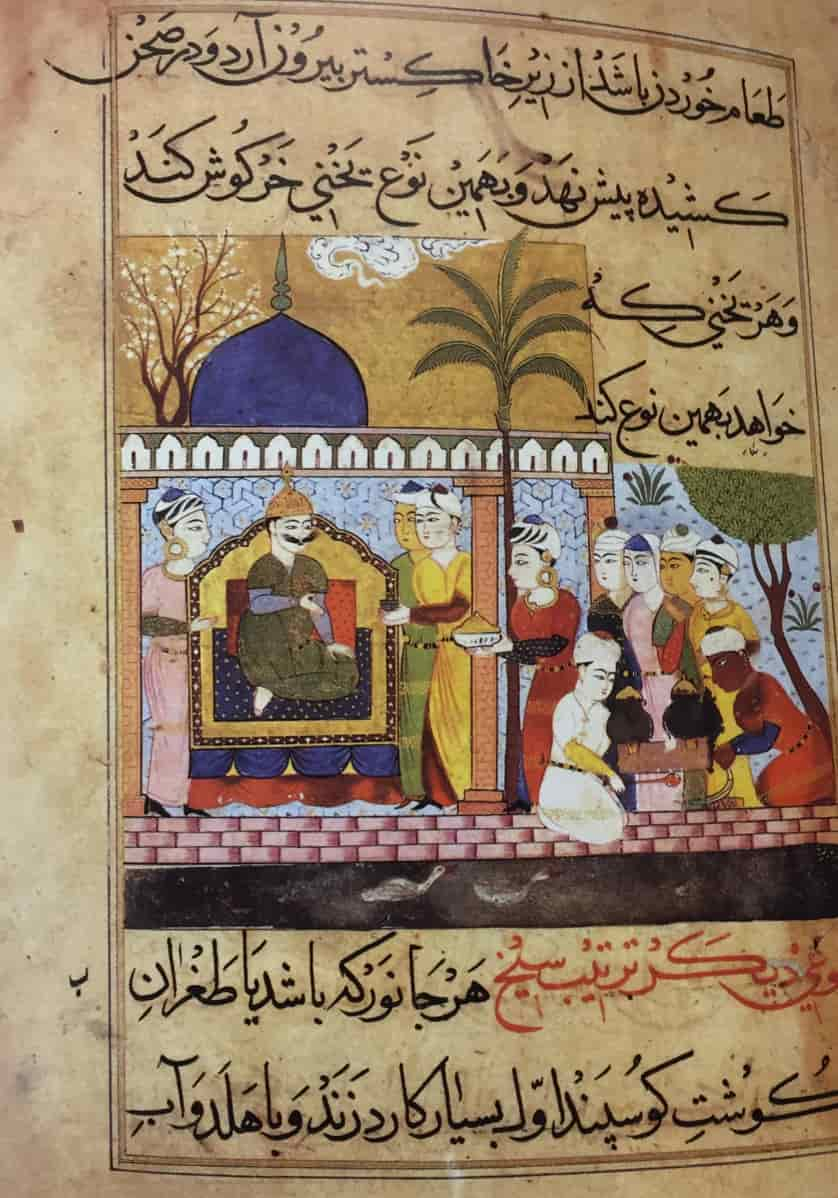 طعام خوردن باشد از زیر خاکستر بیرون آرد و در صحن
کشیده پیش نهد و بهمین نوع یخنی خرکوش کند
و هر یخنی که
خواهد بهمین نوع کند
نوعی دیکر ترتیب سیخ هر جانور که باشد یا طغران
ب
کوشت کوسپند اول بسیار کارد زند و با هلد و آب